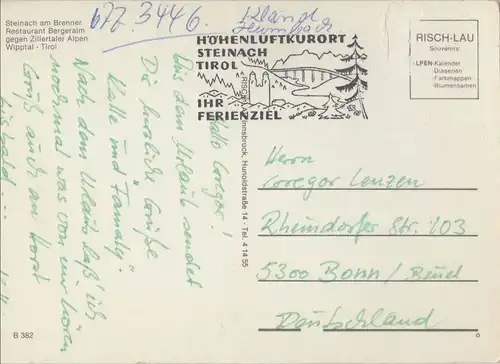 Steinach am Brenner
Restaurant Bergeralm
gegen Zillertaler Alpen
Wipptal - Tirol
677.3446.
HÖHENLUFTKURORT
STEINACH
TIROL
IHR
FERIENZIEL
RISCH-LAU
Souvenirs:
LPEN-Kalender
-Diaserien
-Farbmappen
-Blumensamen
Hallo Gregor!
Aus dem Urlaub sendet
Dir herzliche Grüße
Kalle und Family.
Nach dem Urlaub laß' ich
nochmal was von mir hören
Gruß auch an Horst
Innsbruck, Hunoldstraße 14 - Tel. 4 14 55
Herrn
Gregor Lenzen
Rheindorfer Str. 103
5300 Bonn/Beuel
Deutschland
B 382